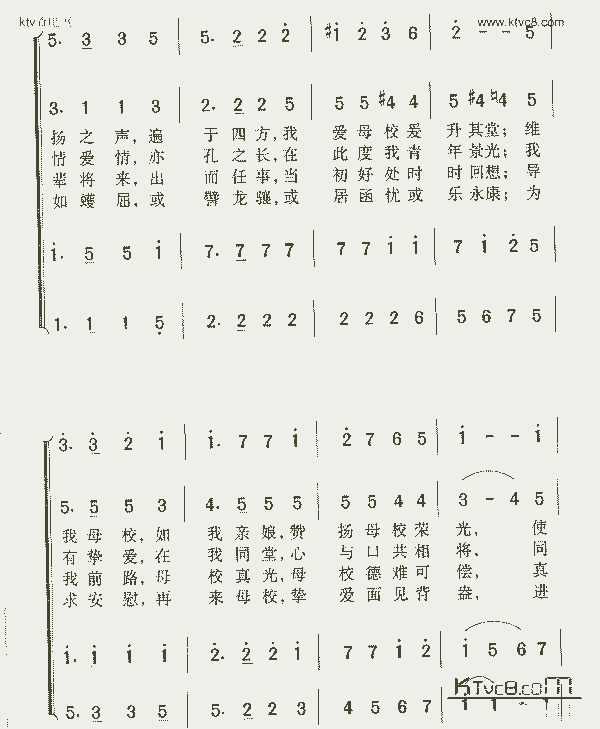 www.ktvc8.com
5. 3 3 5 5. 2 2 2 #1 2 3 6 2 - - 5
3. 1 1 3 2. 2 2 5 5 5 #4 4 5 #4 ♮4 5
扬之声,遍 于四方,我 爱母校爱 升其堂;维
情爱情,亦 孔之长,在 此度我青 年景光;我
辈将来,出 而任事,当 初好处时 时回想;导
如蠖屈,或 龙骧,或 居函忧或 乐永康;为
1. 5 5 1 7. 7 7 7 7 7 1 1 7 1 2 5
1. 1 1 5 2. 2 2 2 2 2 2 6 5 6 7 5
3. 3 2 1 1. 7 7 1 2 7 6 5 1 - - 1
5. 5 5 3 4. 5 5 5 5 5 4 4 3 - 4 5
我母校,如 我亲娘,赞 扬母校荣 光,使
有挚爱,在 我同堂,心 与口共相 将、同
我前路,母 校真光,母 校德难可 偿,真
求安慰,再 来母校,挚 爱面见背 盎,进
1. 1 1 1 2. 2 2 1 7 7 1 2 1 5 6 7
5. 3 3 5 4 5 6 7
KTVC8.COM